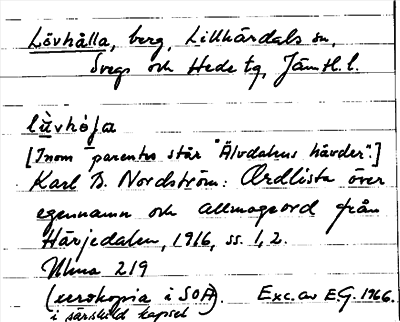 Lövhålla, berg, Lillhärdals sn,
Svegs och Hede tg, Jämtl. l.
lùvhǫ́ḷa
[Inom parentes står "Älvdalens hävder".]
Karl B. Nordström: Ordlista över
egennamn och allmogeord från
Härjedalen, 1916, ss. 1, 2.
Ulma 219
(xerokopia i SOA). Exc. av EG. 1966.
i särskild kapsel